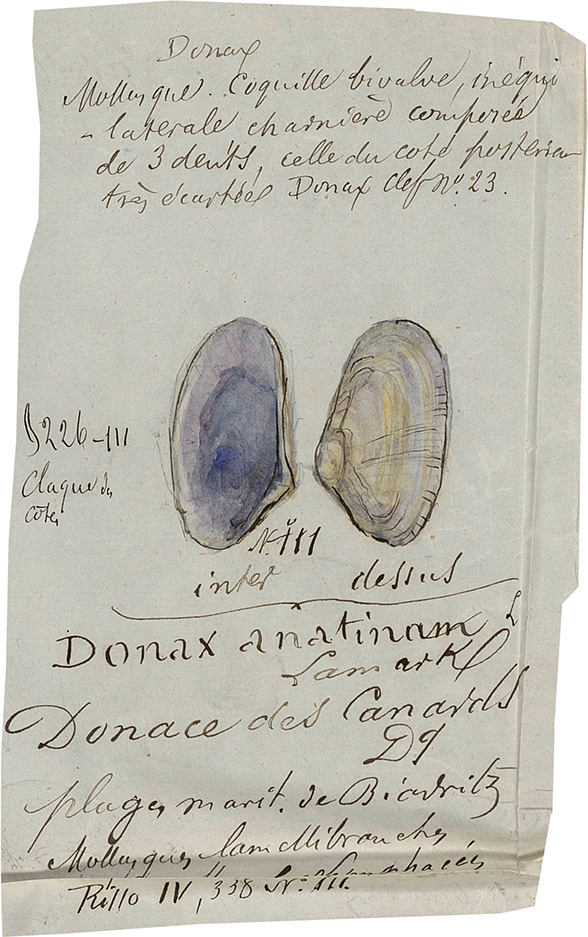 Donax
Mollusque. Coquille bivalve, inéqui
- laterale charnière composée
de 3 dents, celle du coté posterieur
très écartée Donax clef No. 23.
226-III
Claque des
cotes
No. III
inter dessus
Donax anatinam L
Lamark
Donace des Canards
Dg
plages marit. de Biarritz
Mollusques lamellibranches
IV, 338 No. III.